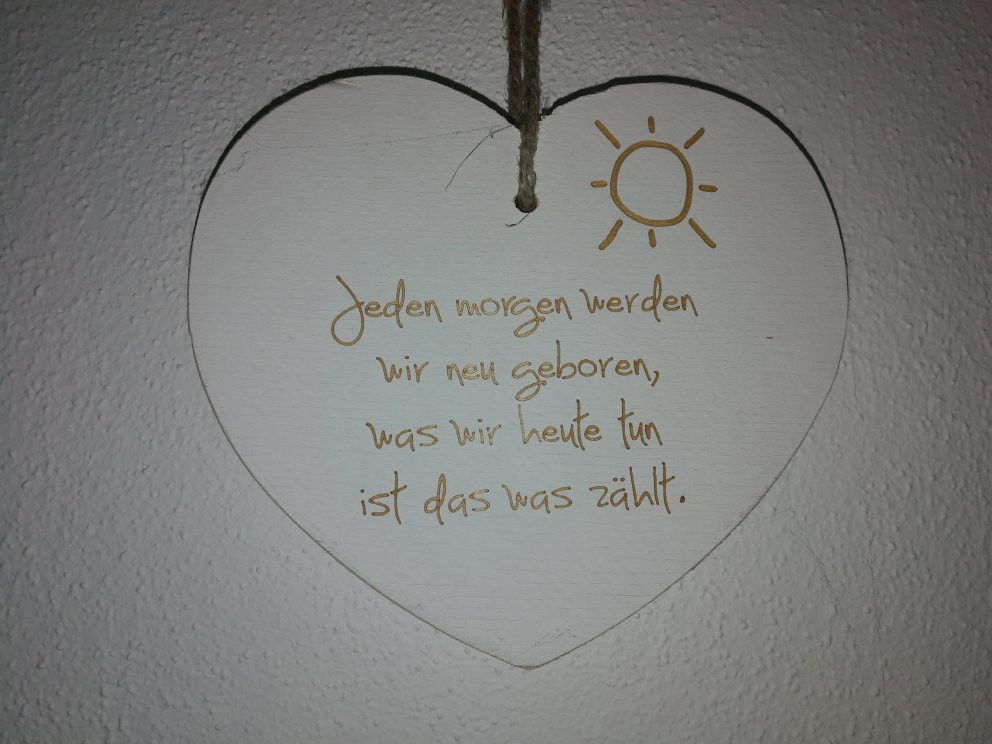 Jeden morgen werden
wir neu geboren,
was wir heute tun
ist das was zählt.